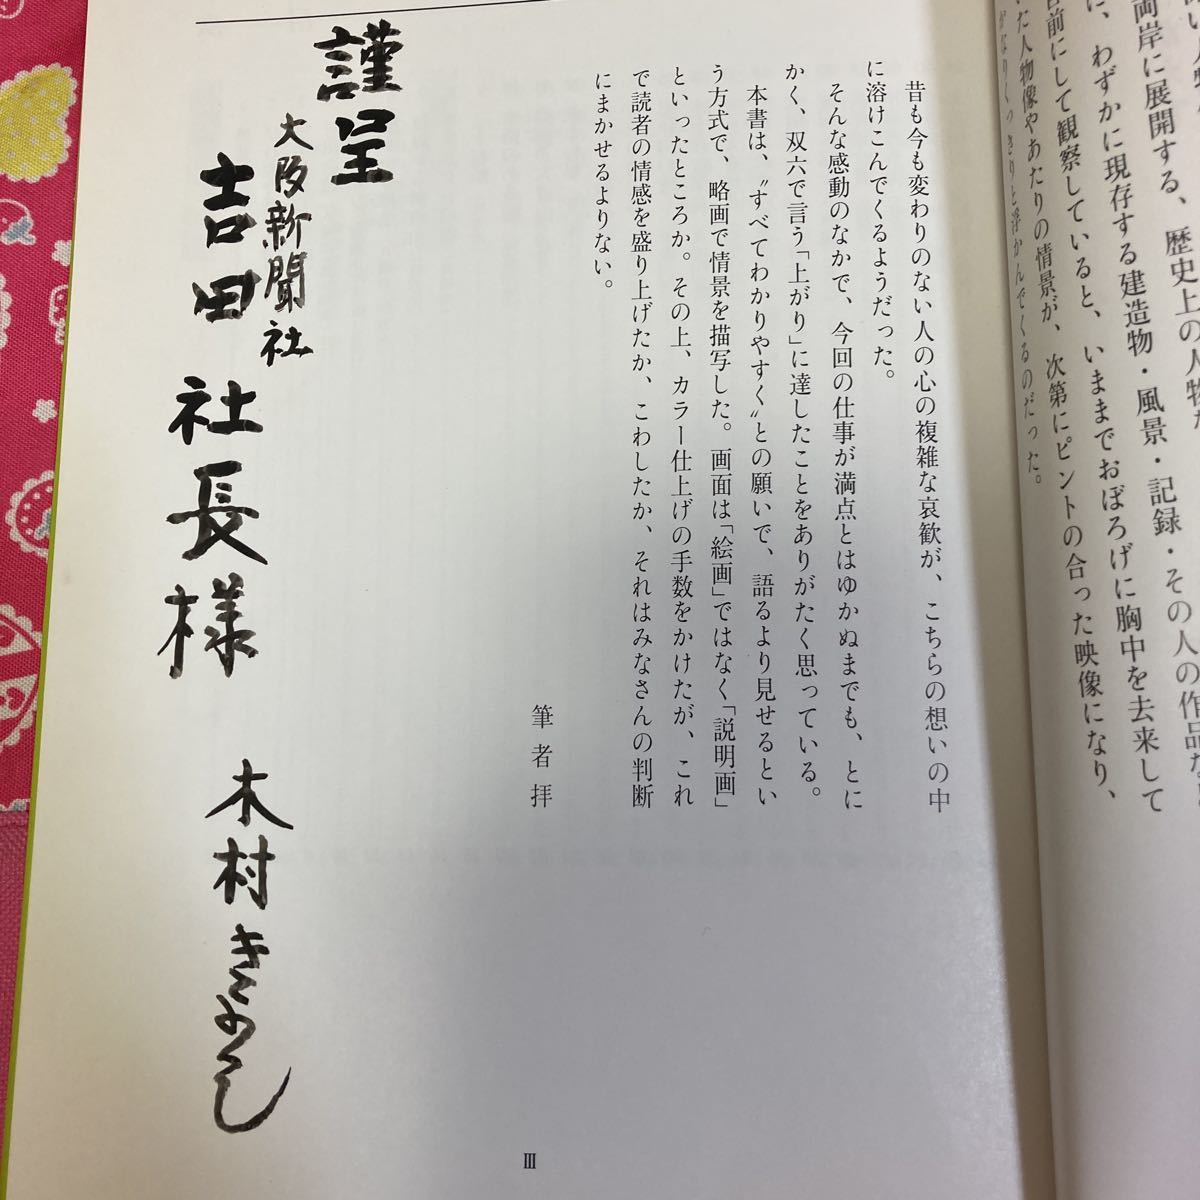 両岸に展開する、歴史上の人物
に、わずかに現存する建造物・風景・記録・その人の作品な
前にして観察していると、いままでおぼろげに胸中を去来して
た人物像やあたりの情景が、次第にピントの合った映像になり、
かなりくっきりと浮かんでくるのだった。
昔も今も変わりのない人の心の複雑な哀歓が、こちらの想いの中
に溶けこんでくるようだった。
そんな感動のなかで、今回の仕事が満点とはゆかぬまでも、とに
かく、双六で言う「上がり」に達したことをありがたく思っている。
本書は、〝すべてわかりやすく〟との願いで、語るより見せるとい
う方式で、略画で情景を描写した。画面は「絵画」ではなく「説明画」
といったところか。その上、カラー仕上げの手数をかけたが、これ
で読者の情感を盛り上げたか、こわしたか、それはみなさんの判断
にまかせるよりない。
筆者拝
謹呈
大阪新聞社
吉田社長様
木村きよし
III